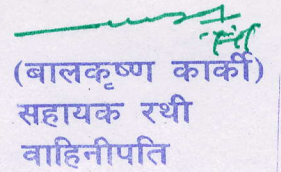 (बालकृष्ण कार्की)
सहायक रथी
वाहिनीपति